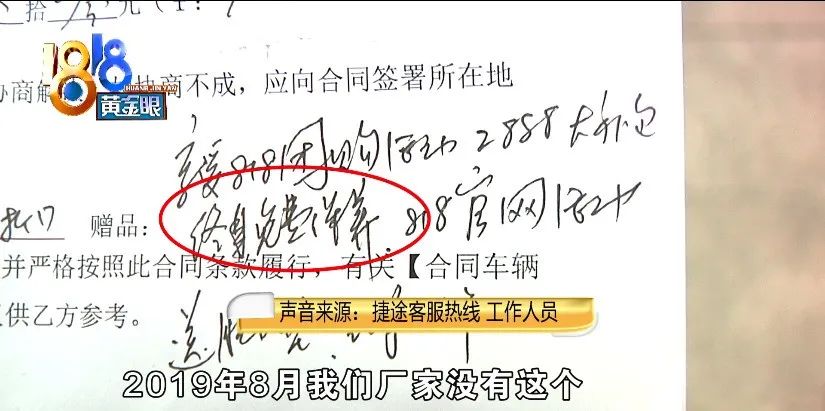 拾
元（1：
1818
HUANG JIN YAN
黄金眼
协商不成，应向合同签署所在地
享受818团购活动 2888大礼包
赠品：终身免费保养 818官网活动
并严格按照此合同条款履行，有关【合同车辆
供乙方参考。
送
声音来源：捷途客服热线 工作人员
2019年8月我们厂家没有这个